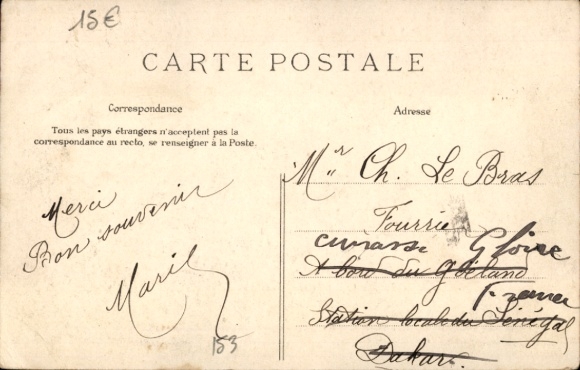 15€
CARTE POSTALE
Correspondance
Tous les pays étrangers n'acceptent pas la
correspondance au recto, se renseigner à la Poste.
Merci
Bon souvenir
153
Adresse
Mr Ch. Le Bras
Fourrier
cuirassé Gloire
A bord du Goëland
Station locale du Sénégal
Dakar.